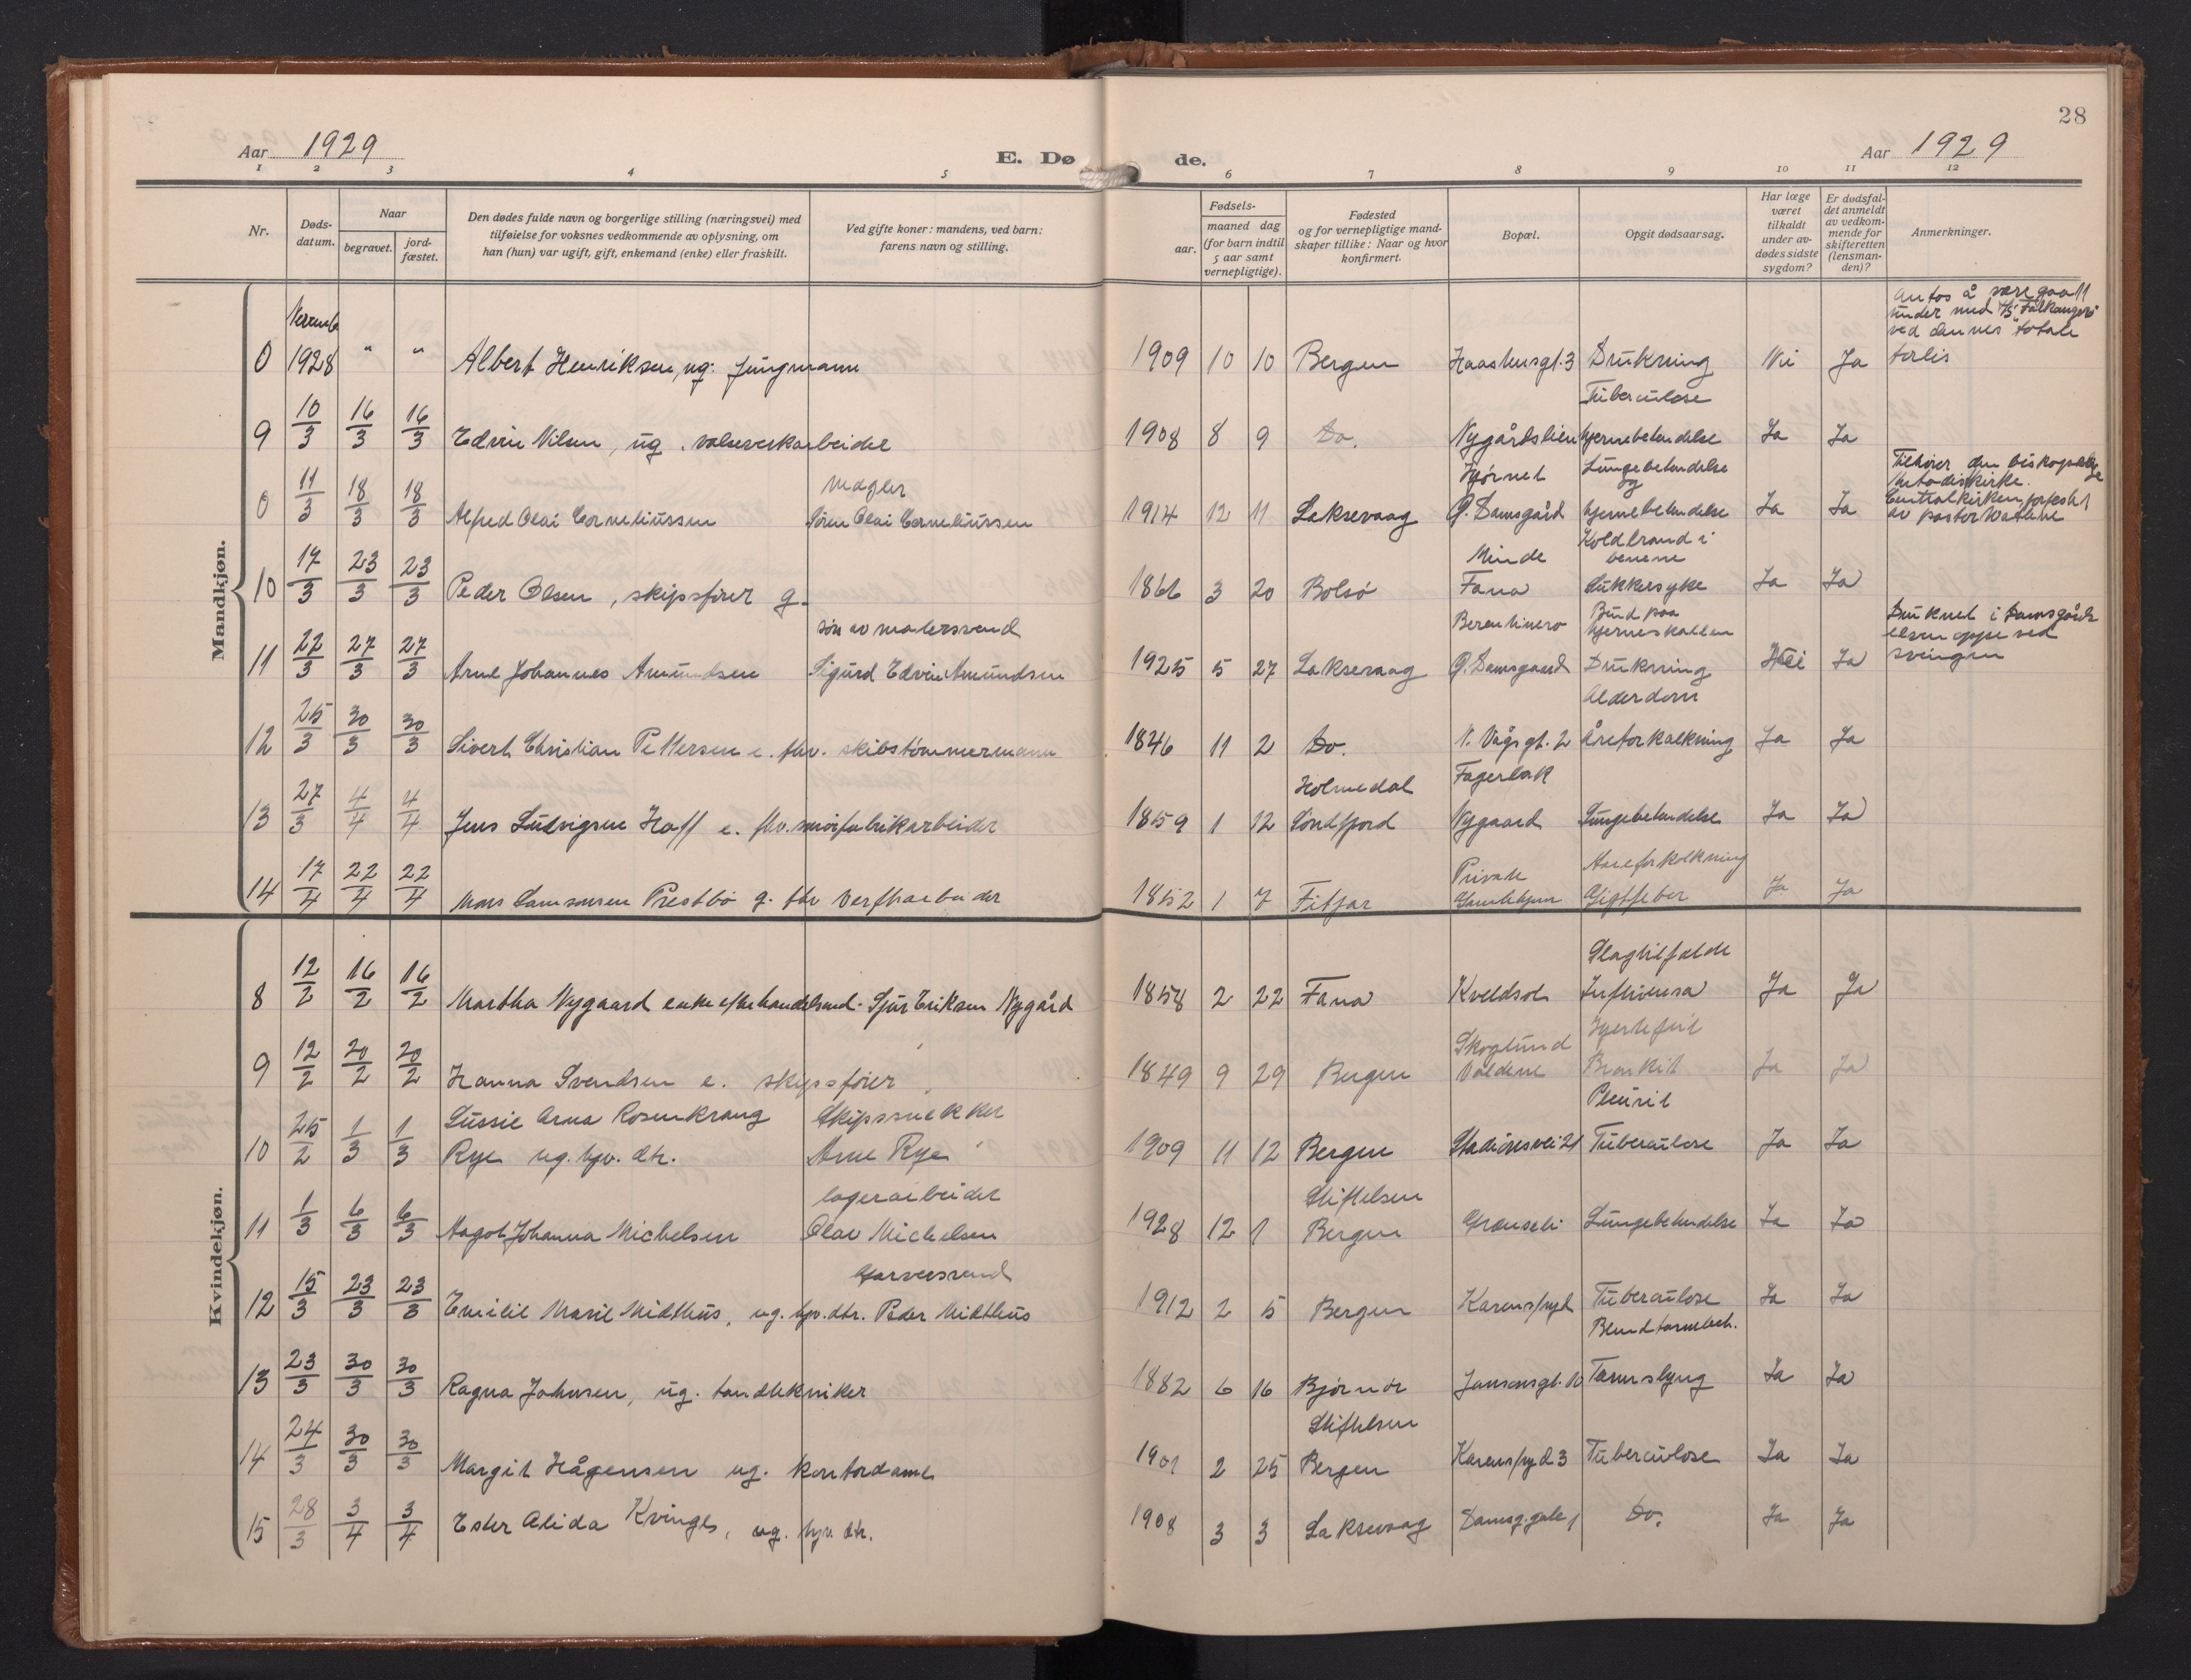 28
Aar 1929
E. Dø
de.
Aar 1929
1 2 3 4 5 6 7 8 9 10 11 12
Nr.
Døds-
datum.
Naar
begravet.
jord-
fæstet.
Den dødes fulde navn og borgerlige stilling (næringsvei) med
tilføielse for voksnes vedkommende av oplysning, om
han (hun) var ugift, gift, enkemand (enke) eller fraskilt.
Ved gifte koner: mandens, ved barn:
farens navn og stilling.
Fødsels-
aar.
maaned dag
(for barn indtil
5 aar samt
vernepligtige).
Fødested
og for vernepligtige mand-
skaper tillike: Naar og hvor
konfirmert.
Bopæl.
Opgit dødsaarsag.
Har læge
været
tilkaldt
under av-
dødes sidste
sygdom?
Er dødsfal-
det anmeldt
av vedkom-
mende for
skifteretten
(lensman-
den)?
Anmerkninger.
Mandkjøn.
Antas å være gaatt
under med D/S "Falkanger"
ved dennes totale
0 1928 " " Albert Henriksen, ug. jungmann 1909 10 10 Bergen 3 Drukning Nei Ja forlis
Tuberculose
9 10/3 16/3 16/3 Edvin Nilsen, ug. valseverkarbeider 1908 8 9 Do. Nygårdslien hjernebetendelse Ja Ja
Mægler Hjørnet Lungebetendelse Tilhører den biskopelige
og Metodistkirke.
0 11/3 18/3 18/3 Alfred Olai Corneliussen Søren Olai Corneliussen 1914 12 11 Laksevaag G. Damsgård hjernebetendelse Ja Ja Centralkirken, jordfestet
av pastor
Minde Koldbrand i
benene
10 17/3 23/3 23/3 Peder Olsen, skipsfører g. 1866 3 20 Bolsø Fana Sukkersyke Ja Ja
søn av malersvend Bund paa Druknet i Damsgårds
hjerneskallen elven oppe ved
11 22/3 27/3 27/3 Arne Johannes Amundsen Sigurd Edvin Amundsen 1925 5 27 Laksevaag G. Damsgaard Drukning Nei Ja svingen
Alderdom
12 25/3 30/3 30/3 Sivert Christian Pettersen e. fhv. skibstømmermann 1846 11 2 Do. N. Vågsgt. 2 Åreforkalkning Ja Ja
Holmedal Fagerbak
13 27/3 4/4 4/4 Jens Ludvigsen Haff e. fhv. smørfabrikarbeider 1859 1 12 Søndfjord Nygaard Lungebetendelse Ja Ja
Private Aareforkalkning
14 17/4 22/4 22/4 Mons Samsonsen Prestbø g. fhv verftsarbeider 1852 1 7 Fitjar Gamlehjem Gigtfeber Ja Ja
Kvindekjøn.
Slagtilfælde
8 12/2 16/2 16/2 Martha Nygaard enke efter handelsmd. Sjur Eriksen Nygård 1858 2 22 Fana Kveldsol Influensa Ja Ja
Skoglund Hjertefeil
9 12/2 20/2 20/2 Hanna Svendsen e. skipsfører 1849 9 29 Bergen Valdene Bronkit Ja Ja
Sussie Arna Rosenkrang Skipssnekker Pleurit
10 25/2 1/3 1/3 Rye ug. hjv. dtr. Arne Rye 1909 11 12 Bergen Stadionsvei 21 Tuberculose Ja Ja
lagerarbeider Stiftelsen
11 1/3 6/3 6/3 Aagot Johanna Michelsen Olav Michelsen 1928 12 1 Bergen Lungebetendelse Ja Ja
Garversvend
12 15/3 23/3 23/3 Emilie Marie Midthus, ug. hjv. dtr. Peder Midthus 1912 2 5 Bergen Karensfryd Tuberculose Ja Ja
Blindtarmbet.
13 23/3 30/3 30/3 Ragna Johnsen, ug. tandtekniker 1882 6 16 Bjørnør Jansonsgt. 10 Tarmslyng Ja Ja
Stiftelsen
14 24/3 30/3 30/3 Margit Hågensen ug. kontordame 1901 2 25 Bergen Karensfryd 3 Tuberculose Ja Ja
15 28/3 3/4 3/4 Ester Alida Kvinge, ug. hjv. dtr. 1908 3 3 Laksevaag Damsg.gate 1 Do. Ja Ja